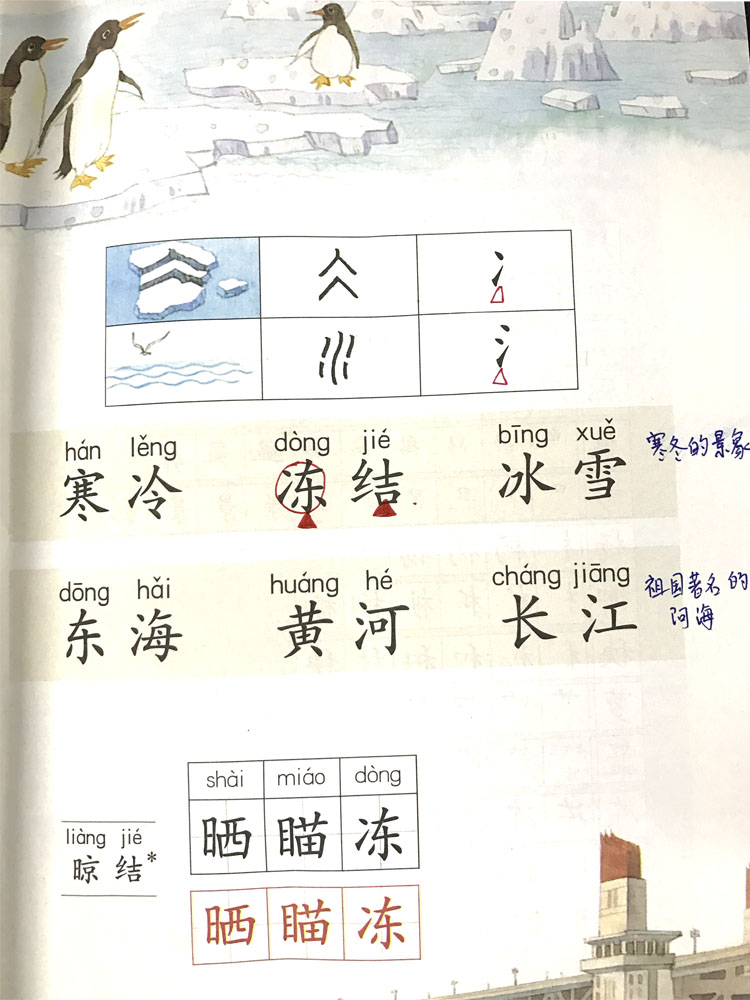 冫
氵
hán lěng dòng jié bīng xuě
寒 冷 冻 结 冰 雪 寒冬的景象
dōng hǎi huáng hé cháng jiāng
东 海 黄 河 长 江 祖国著名的
阿海
shài miáo dòng
晒 瞄 冻
liàng jié
晾 结*
晒 瞄 冻